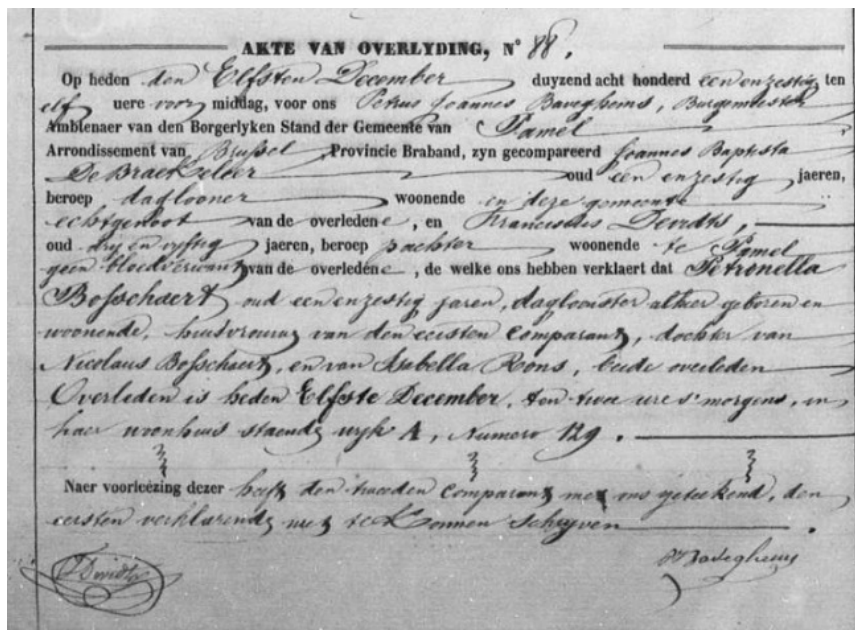 AKTE VAN OVERLYDING, N° 88.
Op heden den Elfsten December duyzend acht honderd een en zestig, ten
elf uere voor middag, voor ons Petrus Joannes Baveghems, Burgemeester
Ambtenaer van den Borgerlyken Stand der Gemeente van Pamel
Arrondissement van Brussel, Provincie Braband, zyn gecompareerd Joannes Baptista
De Braekeleer oud een en zestig jaeren,
beroep daglooner woonende in deze gemeente
echtgenoot van de overledene, en Franciscus Devidts,
oud dry en vyftig jaeren, beroep pachter woonende te Pamel
geen bloedverwant van de overledene, de welke ons hebben verklaert dat Petronella
Bosschaert oud een en zestig jaren, daglooster alhier geboren en
woonende, huisvrouw van den eersten comparant, dochter van
Nicolaus Bosschaert, en van Isabella Roons, beide overleden
Overleden is heden Elfste December, ten twee ure s'morgens, in
haer woonhuis staende wyk A, Numero 129.
Naer voorleézing dezer heeft den tweeden comparant met ons geteekend, den
eersten verklarende niet te konnen schryven.
F Devidts
PJ Baveghems